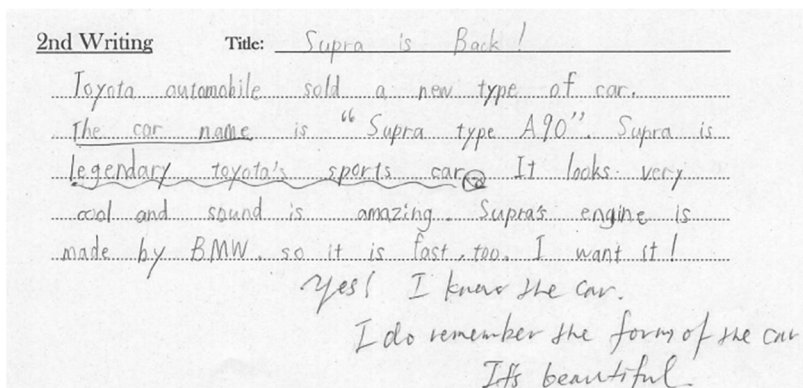 2nd Writing Title: Supra is Back!
Toyota automobile sold a new type of car.
The car name is "Supra type A90". Supra is
legendary toyota's sports car. It looks very
cool and sound is amazing. Supra's engine is
made by BMW. so it is fast, too. I want it!
Yes! I know the car.
I do remember the form of the car
It's beautiful